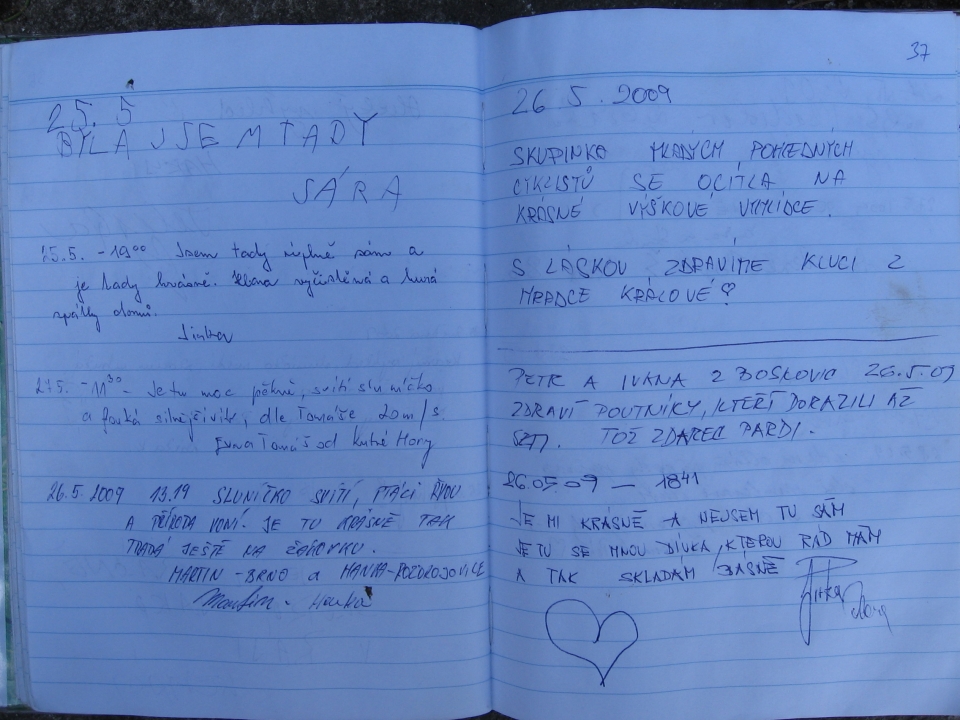 25. 5
BYLA JSEM TADY
SÁRA
25.5. - 19⁰⁰ Jsem tady úplně sám a
je tady krásně. Hlava vyčištěná a hurá
zpátky domů.
Jirka
27.5. - 11³⁰ - Je tu moc pěkně, svítí sluníčko
a fouká silnější vítr, dle Tomáše 20 m/s.
Tomáš od Kutné Hory
26.5 2009 13.19 SLUNÍČKO SVÍTÍ, PTÁCI ŘVOU
A PŘÍRODA VONÍ. JE TU KRÁSNĚ TAK
TRADÁ JEŠTĚ NA
MARTIN - BRNO a HANKA -
Martin - Hanka
37
26 5. 2009
SKUPINKA MLADÝCH, POHLEDNÝCH
CYKLISTŮ SE OCITLA NA
KRÁSNÉ VÝŠKOVÉ VYHLÍDCE.
S LÁSKOU ZDRAVÍME KLUCI Z
HRADCE KRÁLOVÉ ♡
PETR A IVANA Z BOSKOVIC 26.5.09
ZDRAVÍ POUTNÍKY, KTEŘÍ DORAZILI AŽ
SEM. TOŽ ZDAREC PARDI.
26.05.09 — 1841
JE MI KRÁSNĚ A NEJSEM TU SÁM
JE TU SE MNOU DÍVKA, KTEROU RÁD MÁM
A TAK SKLÁDÁM BÁSNĚ
Jirka